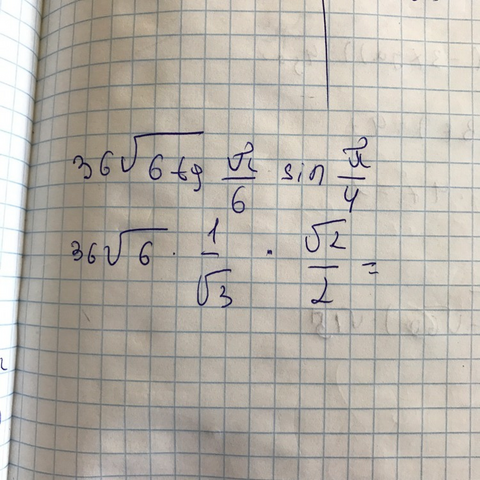 36√6 tg π/6 sin π/4
36√6 · 1/√3 · √2/2 =